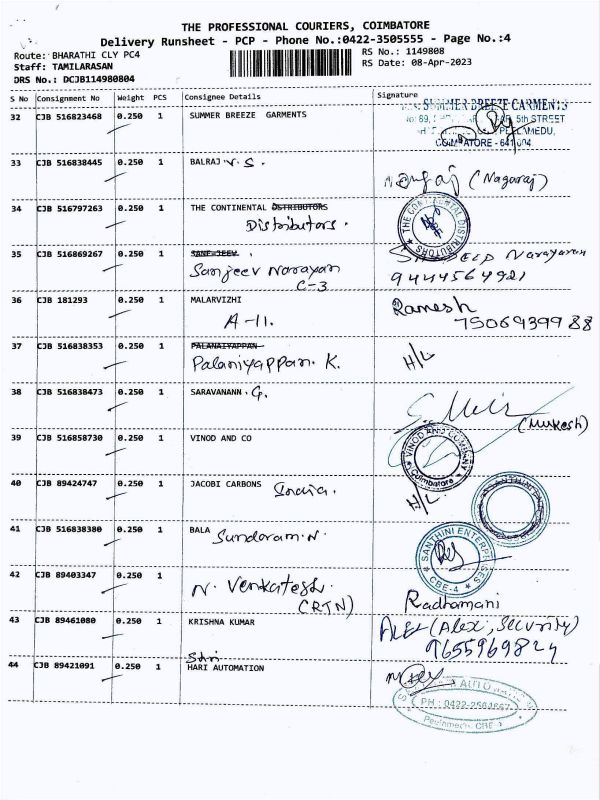 THE PROFESSIONAL COURIERS, COIMBATORE
Delivery Runsheet - PCP - Phone No.:0422-3505555 - Page No.:4
Route: BHARATHI CLY PC4
RS No.: 1149808
Staff: TAMILARASAN
RS Date: 08-Apr-2023
DRS No.: DCJB114980804
S No Consignment No Weight PCS Consignee Details Signature
32 CJB 516823468 0.250 1 SUMMER BREEZE GARMENTS
SUMMER BREEZE GARMENTS
5th STREET
COIMBATORE - 641 004.
33 CJB 516838445 0.250 1 BALRAJ V. S.
(Nagaraj)
34 CJB 516797263 0.250 1 THE CONTINENTAL DSTRIBUTORS
Distributors.
THE CONTINENTAL DISTRIBUTORS
35 CJB 516869267 0.250 1 SANE JEEV
Sanjeev Narayan
C-3
Narayanan
9444564921
36 CJB 181293 0.250 1 MALARVIZHI
A-11.
Ramesh
7506939988
37 CJB 516838353 0.250 1 PALANAIYAPPAN
Palaniyappan. K.
H/L
38 CJB 516838473 0.250 1 SARAVANANN . G.
(Mukesh)
39 CJB 516858730 0.250 1 VINOD AND CO
VINOD AND COMPANY
Coimbatore
40 CJB 89424747 0.250 1 JACOBI CARBONS India.
H/L
41 CJB 516838380 0.250 1 BALA Sundaram. N.
SANTHINI ENTERPRISES
CBE-4
42 CJB 89403347 0.250 1
N. Venkatesh.
(RTN)
Radhamani
43 CJB 89461080 0.250 1 KRISHNA KUMAR
ALEX (Alex, Security)
9655969824
44 CJB 89421091 0.250 1 Shri
HARI AUTOMATION
PH : 0422-2564667